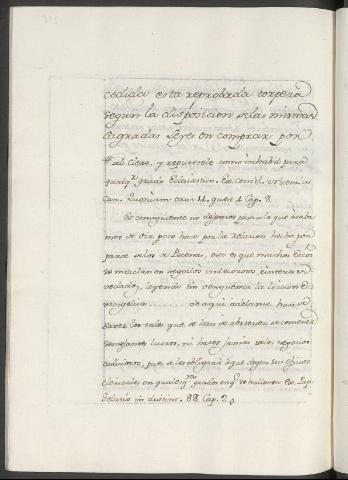 cedida esta reprobada torpeza
segun la disposicion de las mismas
sagradas Leyes en comprar por
# del Clero, y requierele como inhabil para
qualqr. grado Eclesiastico. Ex Concil. Niceno in
Can. Quoniam caus. 14. quest. 4 Cap. 8
Consiguiente no dejemos para lo que acaba
mos de decir poco hace por la relacion hecha por
parte de los de Picena, esto es que muchos Eccos
se mezclan en negocios indecorosos, e interes re
velados, leyendo sin verguenza la leccion E
vangelica ....... de aqui adelante han de
saver los tales que se han de abstener de semejantes
semejantes lucros, ni hacer jamas tales negocios
codiciosos, pues se les obligará á que dejen sus oficios
clericales en qualesqra. grados en q.e se hallaren. Ex Pap.
Gelasio in distinc. 88. Cap. 2